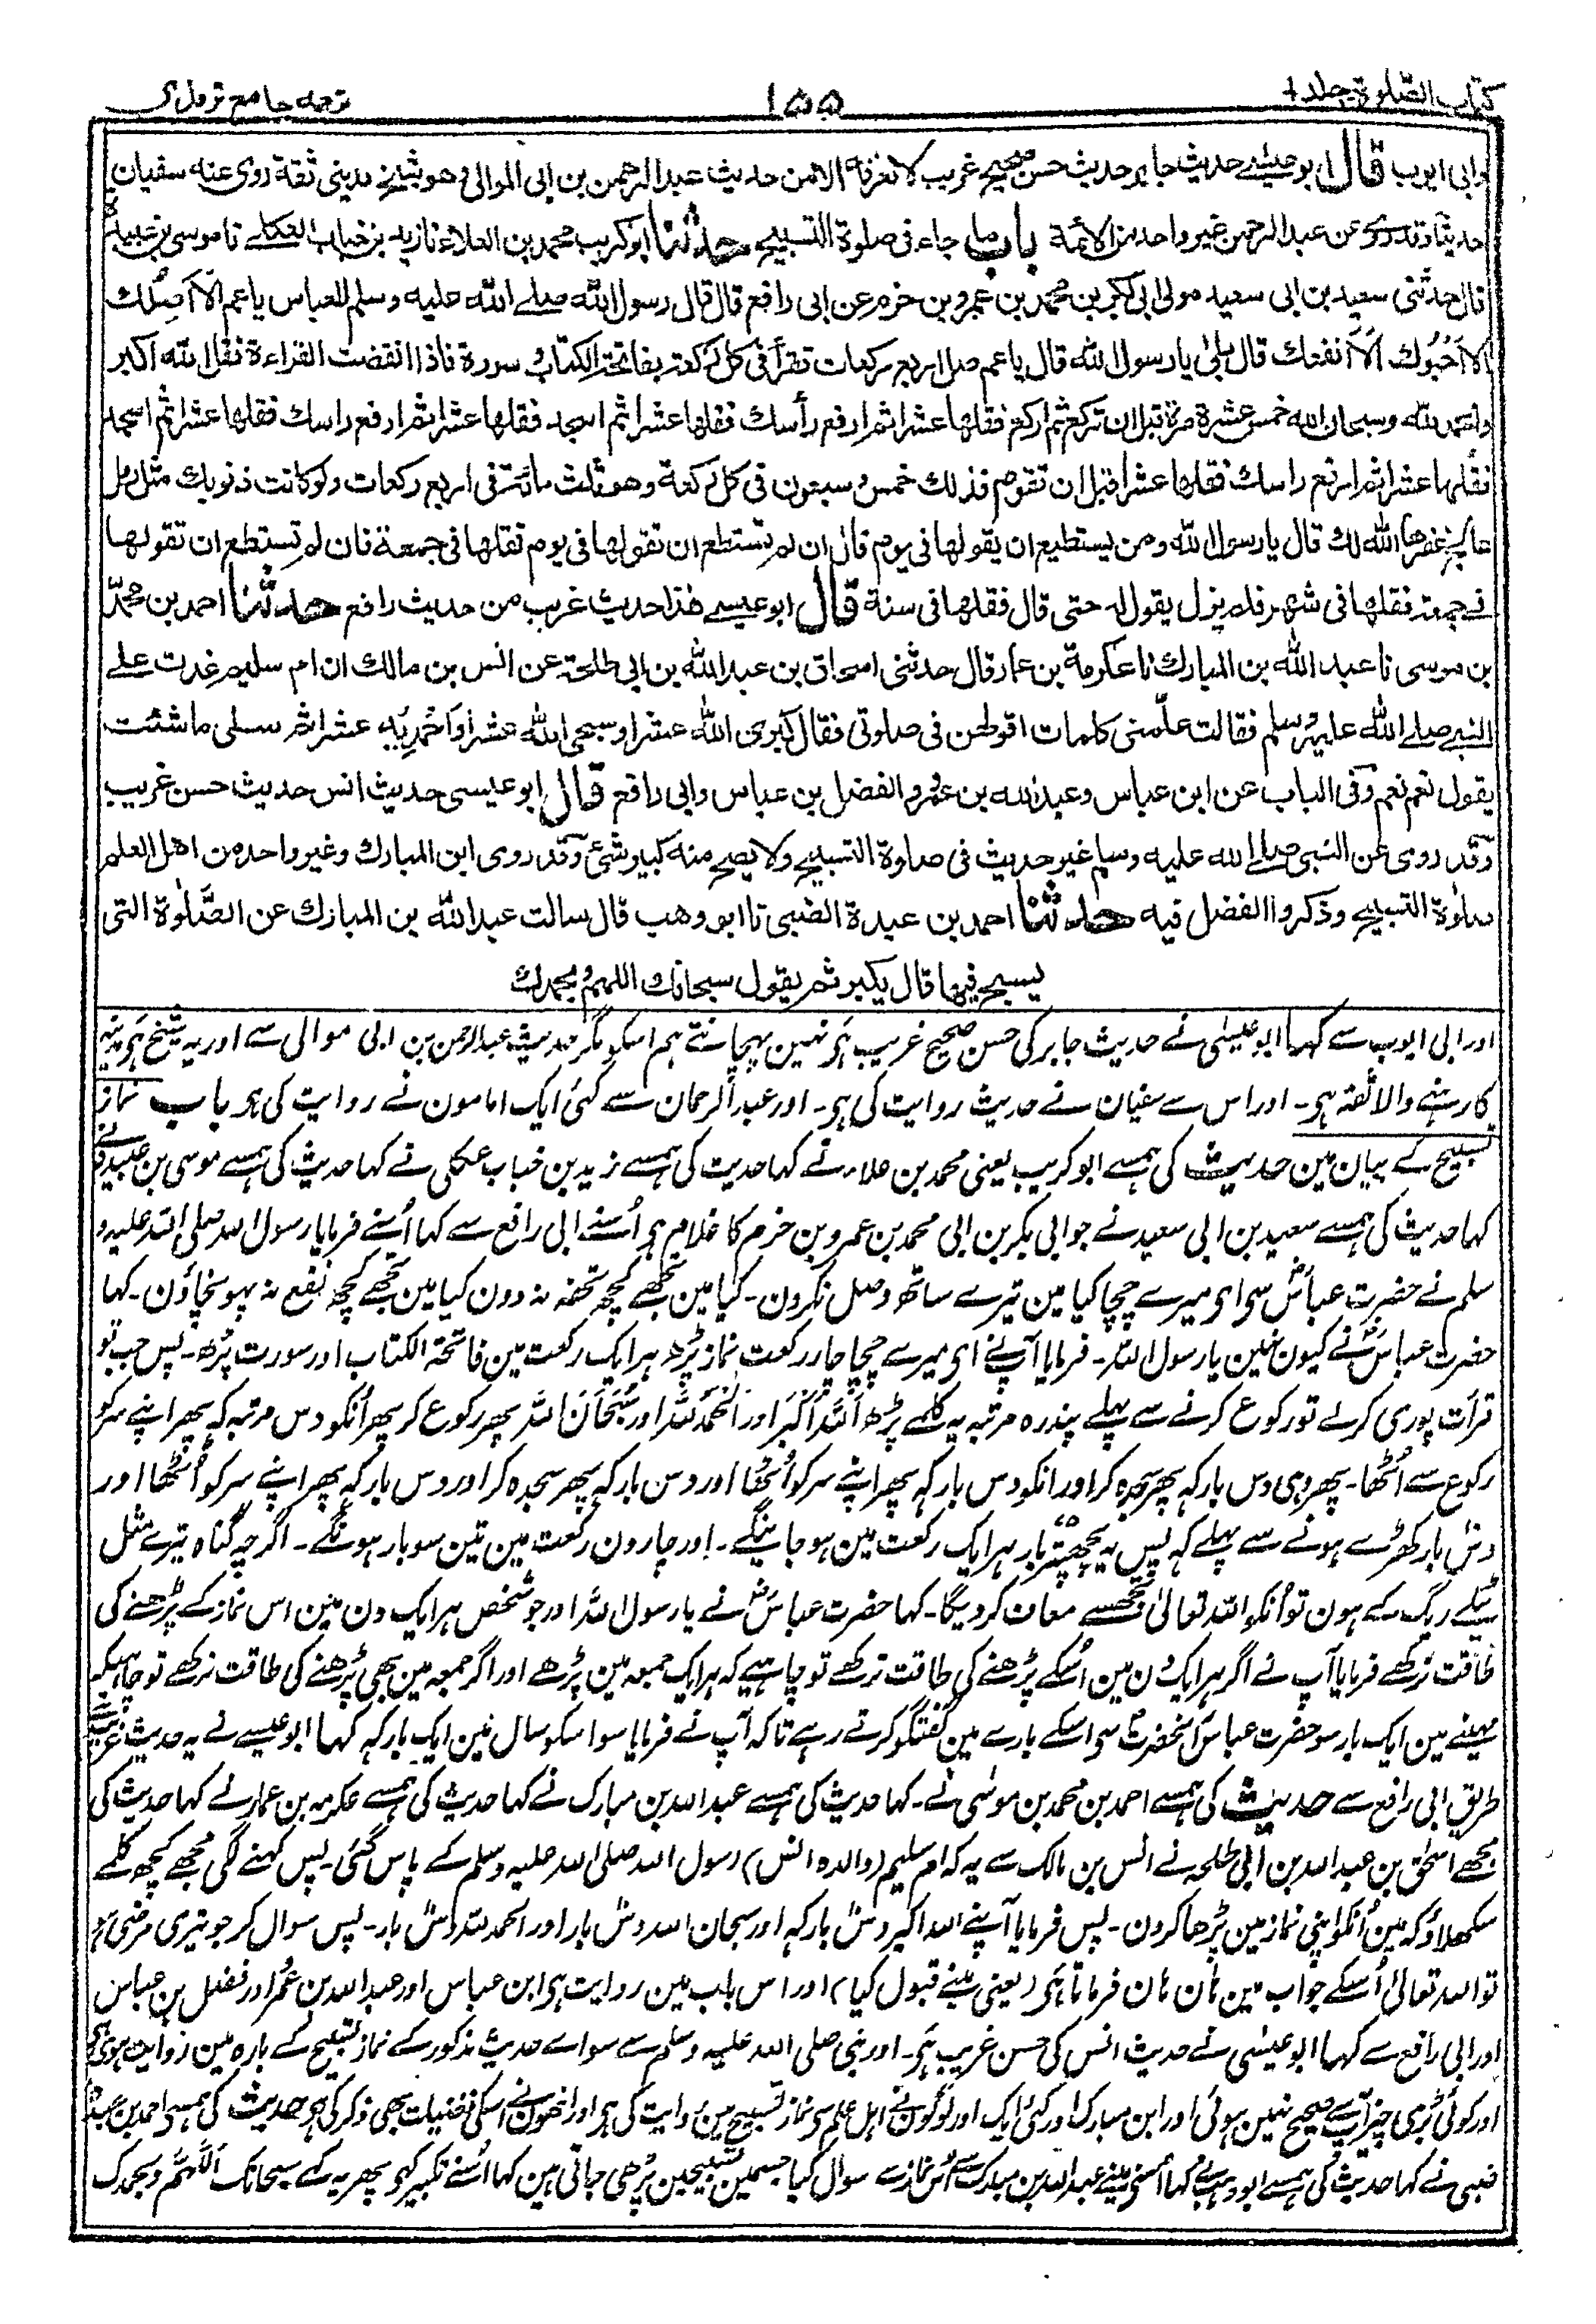 کتاب الصلوٰۃ جلد ۱
۱۵۵
ترجمہ جامع ترمذی
وابى ايوب قال ابو عيسے حديث جابر حديث حسن صحيح غريب لا نعرفه الا من حديث عبد الرحمن بن ابى الموالى وهو شيخ مدينى ثقة روى عنه سفيان
حديثا وقد روى عن عبد الرحمن غير واحد من الائمة باب ما جاء فى صلوة التسبيح حدثنا ابو كريب محمد بن العلاء نا زيد بن خباب العكلے نا موسى بن عبيدة
قال حدثنى سعيد بن ابى سعيد مولى ابى بكر بن محمد بن عمرو بن حزم عن ابى رافع قال قال رسول الله صلے الله عليه وسلم للعباس يا عم الا اصلك
الا احبوك الا انفعك قال بلى يا رسول الله قال يا عم صل اربع ركعات تقرأ فى كل ركعة بفاتحة الكتاب وسورة فاذا انقضت القراءة فقل الله اكبر
والحمد لله وسبحان الله خمس عشرة مرة قبل ان تركع ثم اركع فقلها عشرا ثم ارفع رأسك فقلها عشرا ثم اسجد فقلها عشرا ثم ارفع راسك فقلها عشرا ثم اسجد
فقلها عشرا ثم ارفع راسك فقلها عشرا قبل ان تقوم فذلك خمس وسبعون فى كل ركعة وهو ثلث مائة فى اربع ركعات ولو كانت ذنوبك مثل رمل
عالج غفرها الله لك قال يا رسول الله ومن يستطيع ان يقولها فى يوم قال ان لم تستطع ان تقولها فى يوم فقلها فى جمعة فان لم تستطع ان تقولها
فے جمعة فقلها فى شهر فلم يزل يقول له حتى قال فقلها فى سنة قال ابو عيسے هذا حديث غريب من حديث رافع حدثنا احمد بن محمد
بن موسى نا عبد الله بن المبارك نا عكرمة بن عمار قال حدثنى اسحاق بن عبد الله بن ابى طلحة عن انس بن مالك ان ام سليم غدت علے
النبى صلے الله عليه وسلم فقالت علمنى كلمات اقولهن فى صلوتى فقال كبرى الله عشرا وسبحى الله عشرا واحمديه عشرا ثم سلى ما شئت
يقول نعم نعم وفى الباب عن ابن عباس وعبد الله بن عمرو والفضل بن عباس وابى رافع قال ابو عيسى حديث انس حديث حسن غريب
وقد روى عن النبى صلے الله عليه وسلم غير حديث فى صلوة التسبيح ولا يصح منه كبير شئ وقد روى ابن المبارك وغير واحد من اهل العلم
صلوة التسبيح وذكروا الفضل فيه حدثنا احمد بن عبدة الضبى نا ابو وهب قال سالت عبد الله بن المبارك عن الصلوة التى
يسبح فيها قال يكبر ثم يقول سبحانك اللهم وبحمدك
اور ابی ایوب سے کہا ابو عیسٰی نے حدیث جابر کی حسن صحیح غریب ہی نہین پہچانتے ہم اسکو مگر حدیث عبد الرحمن بن ابی موالی سے اور یہ شیخ ہی مدینہ
کا رہنے والا ثقہ ہی۔ اور اس سے سفیان نے حدیث روایت کی ہی۔ اور عبد الرحمان سے کئی ایک امامون نے روایت کی ہی باب نماز
تسبیح کے بیان مین حدیث کی ہمسے ابو کریب یعنی محمد بن علاء نے کہا حدیث کی ہمسے زید بن خباب عکلی نے کہا حدیث کی ہمسے موسی بن عبیدہ نے
کہا حدیث کی ہمسے سعید بن ابی سعید نے جو ابی بکر بن ابی محمد بن عمرو بن حزم کا غلام ہی اُسنے ابی رافع سے کہا اُسنے فرمایا رسول اللہ صلی اللہ علیہ و
سلم نے حضرت عباسؓ سی ای میرے چچا کیا مین تیرے ساتھ وصل نکرون۔ کیا مین تجھے کچھ تحفہ نہ دون کیا مین تجھے کچھ نفع نہ پہونچاؤن۔ کہا
حضرت عباسؓ نے کیون نہین یا رسول اللہ۔ فرمایا آپنے ای میرے چچا چار رکعت نماز پڑھ ہر ایک رکعت مین فاتحۃ الکتاب اور سورت پڑھ۔ پس جب تو
قرأت پوری کرلے تو رکوع کرنے سے پہلے پندرہ مرتبہ یہ کلمے پڑھ اَللّٰہُ اَکْبَر اور اَلْحَمْدُ لِلّٰہ اور سُبْحَانَ اللّٰہ پھر رکوع کر پھر اُنکو دس مرتبہ کہ پھر اپنے سر کو
رکوع سے اُٹھا۔ پھر وہی دس بار کہ پھر سجدہ کر اور انکو دس بار کہ پھر اپنے سر کو اُٹھا اور دس بار کہ پھر سجدہ کر اور دس بار کہ پھر اپنے سر کو اُٹھا اور
دس بار کھڑے ہونے سے پہلے کہ پس یہ پچھتر بار ہر ایک رکعت مین ہو جاینگے۔ اور چارون رکعت مین تین سو بار ہونگے۔ اگرچہ گناہ تیرے مثل
ٹیلے ریگ کے ہون تو اُنکو اللہ تعالیٰ تجھسے معاف کر دیگا۔ کہا حضرت عباسؓ نے یا رسول اللہ اور جو شخص ہر ایک دن مین اس نماز کے پڑھنے کی
طاقت نرکھے فرمایا آپ نے اگر ہر ایک دن مین اُسکے پڑھنے کی طاقت نرکھے تو چاہیے کہ ہر ایک جمعہ مین پڑھے اور اگر جمعہ مین بھی پڑھنے کی طاقت نرکھے تو چاہیکہ
مہینے مین ایک بار سو حضرت عباسؓ آنحضرت سی اسکے بارے مین گفتگو کرتے رہے تا کہ آپ نے فرمایا سو اسکو سال مین ایک بار کہ کہا ابو عیسے نے یہ حدیث غریب ہے
طریق ابی رافع سے حدیث کی ہمسے احمد بن محمد بن موسٰی نے۔ کہا حدیث کی ہمسے عبد اللہ بن مبارک نے کہا حدیث کی ہمسے عکرمہ بن عمار نے کہا حدیث کی
مجھسے اسحٰق بن عبد اللہ بن ابی طلحہ نے انس بن مالک سے یہ کہ ام سلیم (والدہ انس) رسول اللہ صلی اللہ علیہ وسلم کے پاس گئی۔ پس کہنے لگی مجھے کچھ کلمے
سکھلاؤ کہ مین اُنکو اپنی نماز مین پڑھا کرون۔ پس فرمایا آپنے اللہ اکبر دس بار کہ اور سبحان اللہ دس بار اور الحمد للہ دس بار۔ پس سوال کر جو تیری مرضی ہو
تو اللہ تعالیٰ اُسکے جواب مین ہان ہان فرماتا ہی (یعنی مینے قبول کیا) اور اس باب مین روایت ہی ابن عباس اور عبد اللہ بن عمرو اور فضل بن عباس
اور ابی رافع سے کہا ابو عیسٰی نے حدیث انس کی حسن غریب ہی۔ اور نبی صلی اللہ علیہ وسلم سے سواے حدیث مذکور کے نماز تسبیح کے بارہ مین روایت ہوئی ہی
اور کوئی بڑی چیز آپسے صحیح نہین ہوئی اور ابن مبارک اور کئی ایک اور لوگون نے اہل علم سی نماز تسبیح مین روایت کی ہی اور انھون نے اسکی فضیلت بھی ذکر کی ہی حدیث کی ہمسی احمد بن عبدہ
ضبی نے کہا حدیث کی ہمسے ابو وہب نے کہا اُسنی مینے عبد اللہ بن مبارک سے اُس نماز سے سوال کیا جسمین تسبیحین پڑھی جاتی ہین کہا اُسنے تکبیر کہی پھر یہ کہے سبحانک اَللّٰھُمَّ وبحمدک